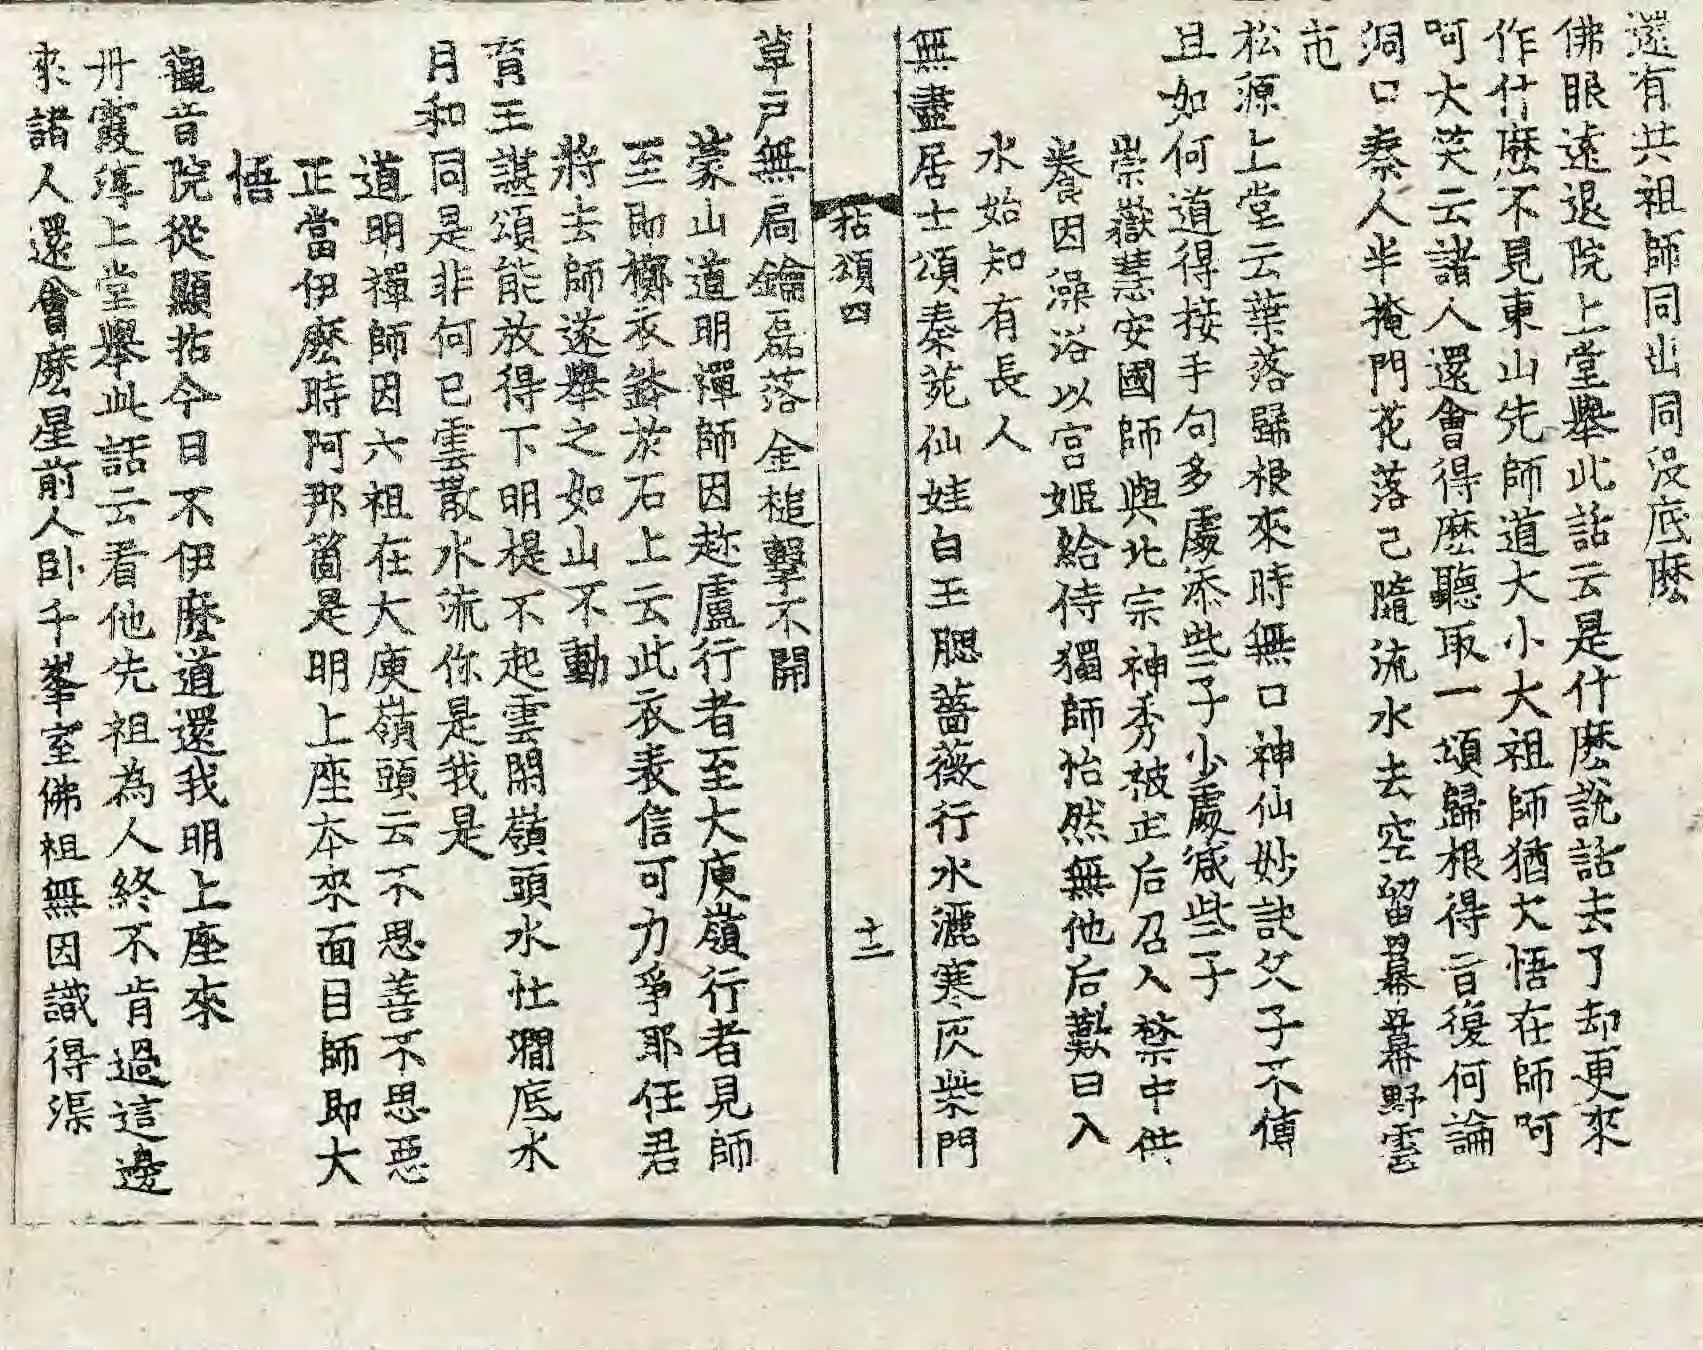 還有共祖師同出同沒底麽
佛眼遠退院上堂舉此話云是什麽說話去了却更來
作什麽不見東山先師道大小大祖師猶欠悟在師呵
呵大笑云諸人還會得麽聽取一頌歸根得旨復何論
洞口秦人半掩門花落已隨流水去空留羃羃野雲
屯
松源上堂云葉落歸根來時無口神仙妙訣父子不傳
且如何道得接手句多處添些子少處减些子
崇嶽慧安國師與北宗神秀被武后召入禁中供
養因澡浴以宮姬給侍獨師怡然無他后歎曰入
水始知有長人
無盡居士頌秦苑仙娃白玉腮薔薇行水灑寒灰柴門
拈頌四
十二
草戶無扃鑰磊落金槌擊不開
蒙山道明禪師因趂盧行者至大庾嶺行者見師
至即擲衣鉢於石上云此衣表信可力爭耶任君
將去師遂舉之如山不動
育王諶頌能放得下明提不起雲閑嶺頭水忙㵎底水
月和同是非何已雲散水流你是我是
道明禪師因六祖在大庾嶺頭云不思善不思惡
正當伊麽時阿那箇是明上座本來面目師即大
悟
觀音院從顯拈今日不伊麽道還我明上座來
丹霞淳上堂舉此話云看他先祖為人終不肯過這邊
來諸人還會麽星前人臥千峯室佛祖無因識得渠